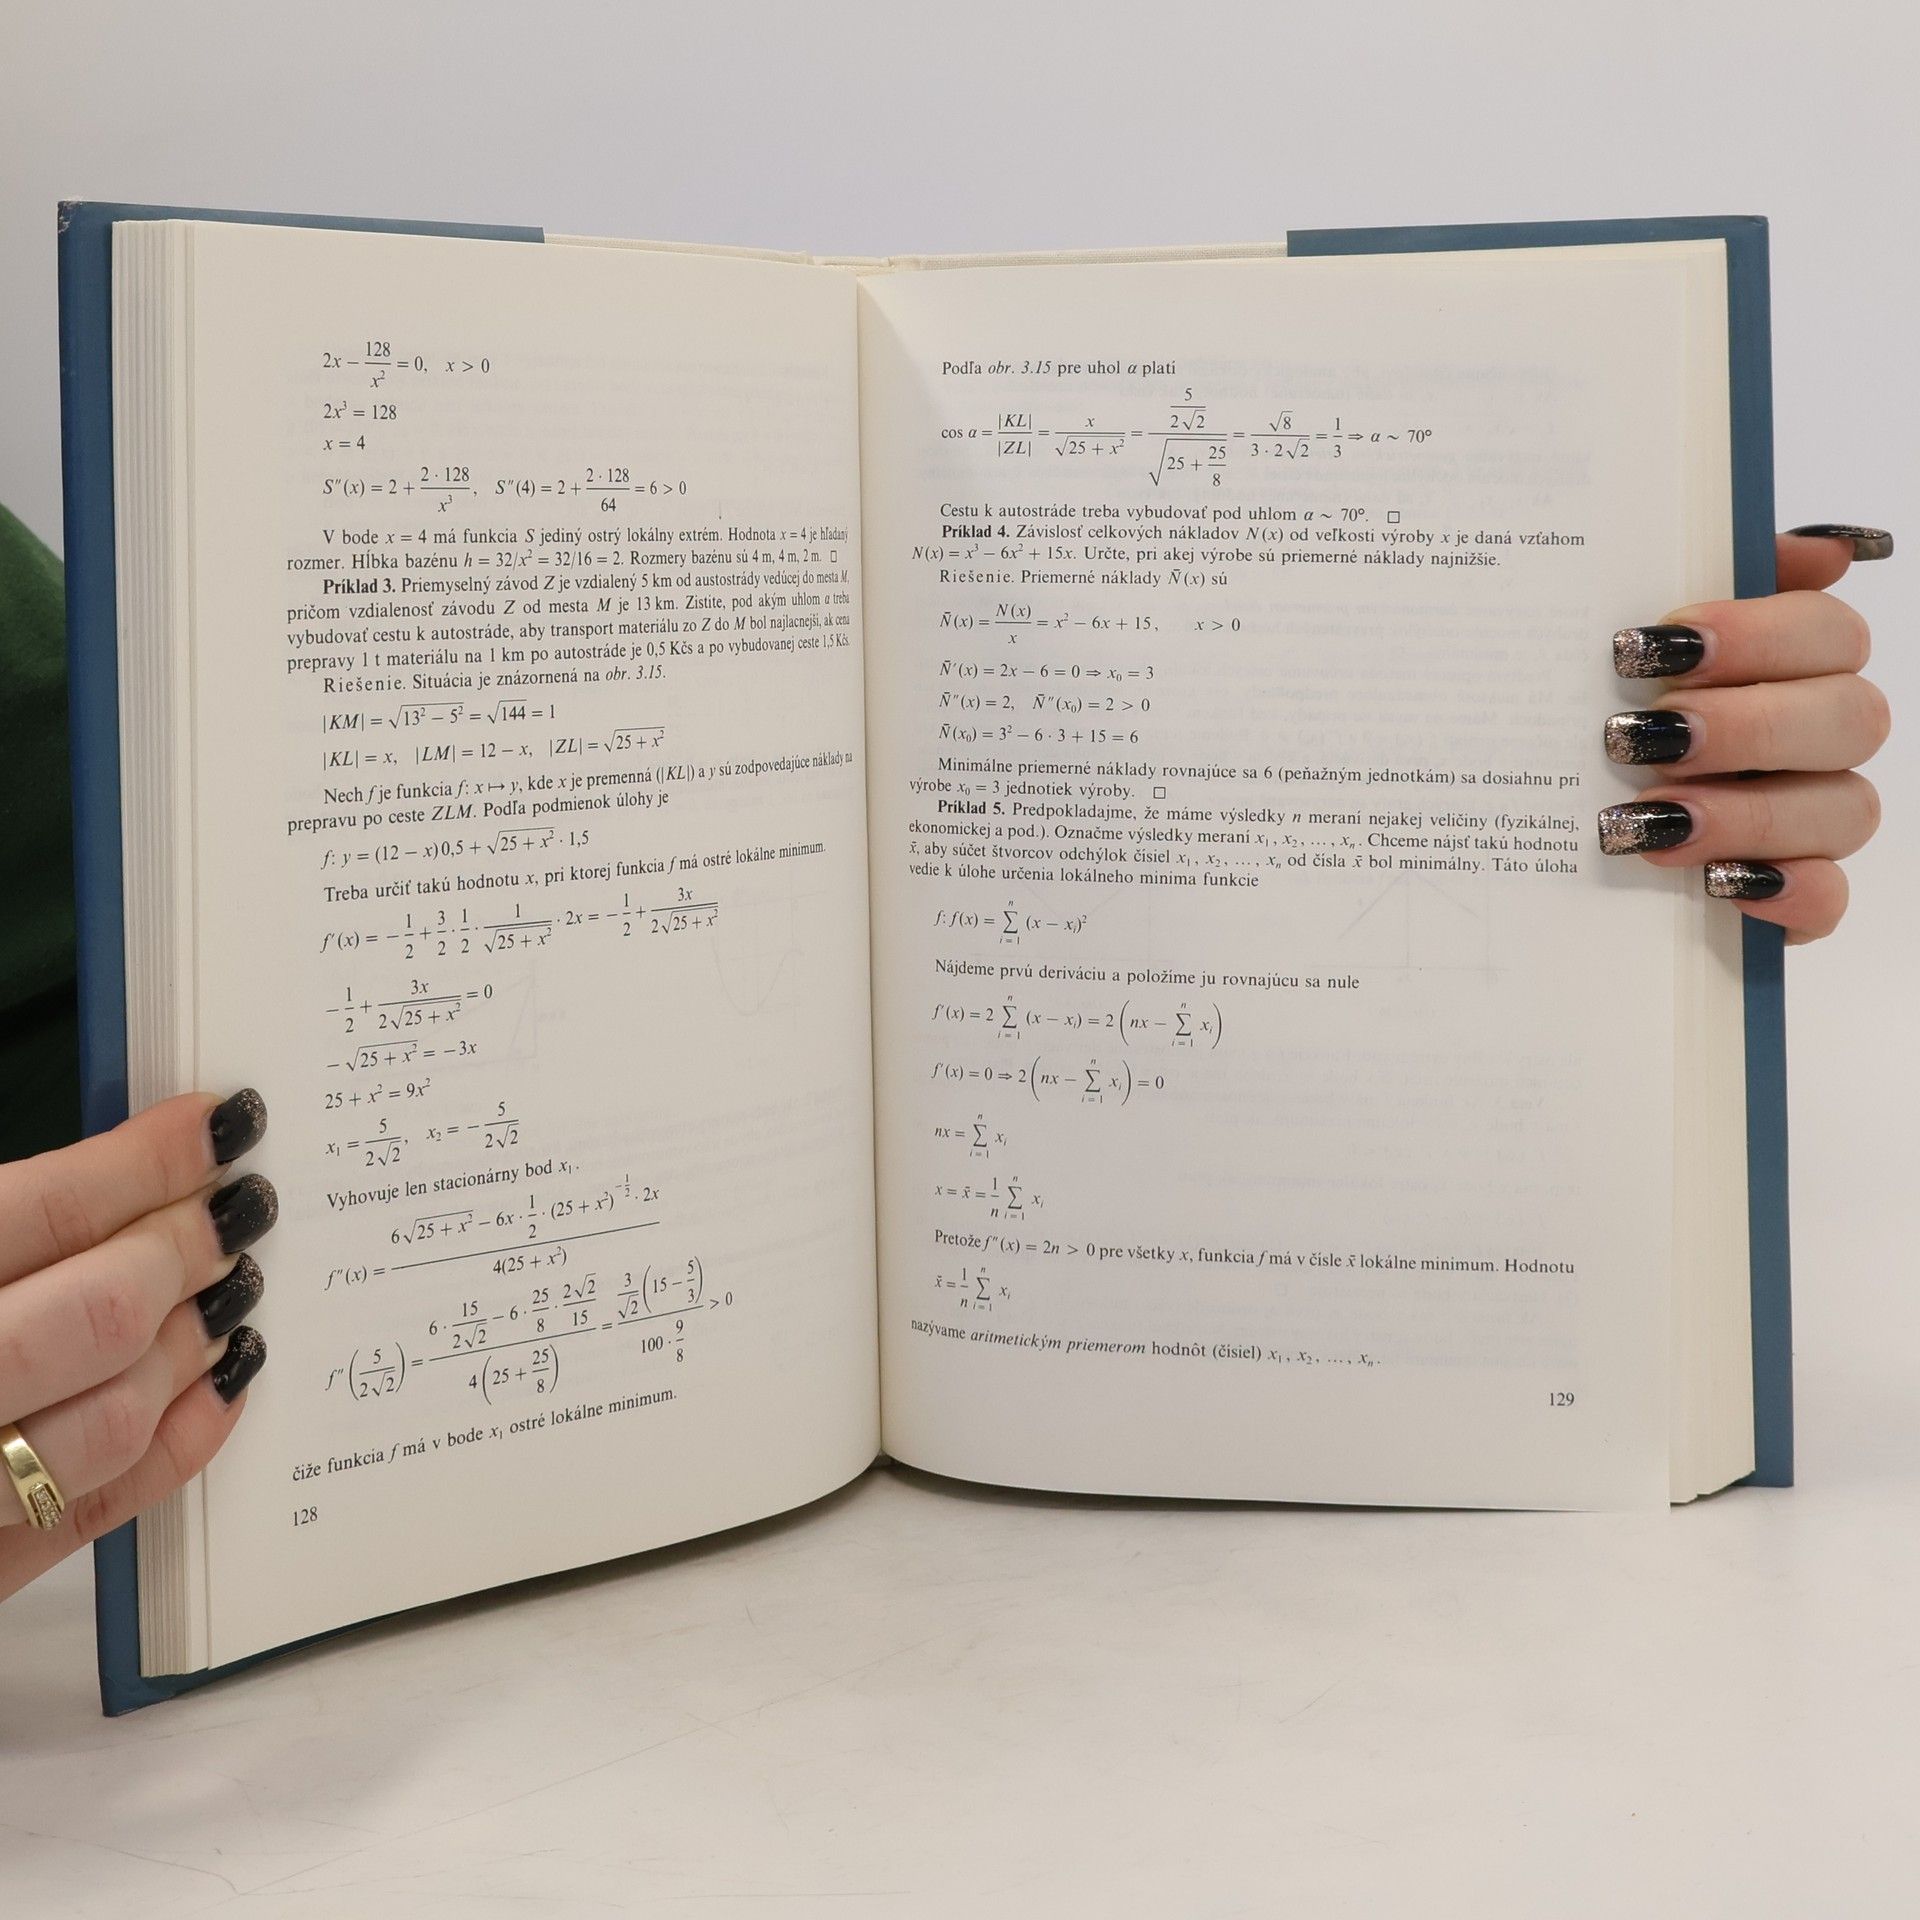 2x − 128/x² = 0, x > 0
2x³ = 128
x = 4
S″(x) = 2 + 2 · 128/x³, S″(4) = 2 + 2 · 128/64 = 6 > 0
V bode x = 4 má funkcia S jediný ostrý lokálny extrém. Hodnota x = 4 je hľadaný
rozmer. Hĺbka bazénu h = 32/x² = 32/16 = 2. Rozmery bazénu sú 4 m, 4 m, 2 m. □
Príklad 3. Priemyselný závod Z je vzdialený 5 km od austostrády vedúcej do mesta M,
pričom vzdialenosť závodu Z od mesta M je 13 km. Zistite, pod akým uhlom α treba
vybudovať cestu k autostráde, aby transport materiálu zo Z do M bol najlacnejší, ak cena
prepravy 1 t materiálu na 1 km po autostráde je 0,5 Kčs a po vybudovanej ceste 1,5 Kčs.
Riešenie. Situácia je znázornená na obr. 3.15.
|KM| = √(13² − 5²) = √144 = 1
|KL| = x, |LM| = 12 − x, |ZL| = √(25 + x²)
Nech f je funkcia f: x ↦ y, kde x je premenná (|KL|) a y sú zodpovedajúce náklady na
prepravu po ceste ZLM. Podľa podmienok úlohy je
f: y = (12 − x) 0,5 + √(25 + x²) · 1,5
Treba určiť takú hodnotu x, pri ktorej funkcia f má ostré lokálne minimum.
f′(x) = − 1/2 + 3/2 · 1/2 · 1/√(25 + x²) · 2x = − 1/2 + 3x/(2√(25 + x²))
− 1/2 + 3x/(2√(25 + x²)) = 0
− √(25 + x²) = −3x
25 + x² = 9x²
x₁ = 5/(2√2), x₂ = − 5/(2√2)
Vyhovuje len stacionárny bod x₁.
f″(x) = (6√(25 + x²) − 6x · 1/2 · (25 + x²)^(−1/2) · 2x)/(4(25 + x²))
f″(5/(2√2)) = (6 · 15/(2√2) − 6 · 25/8 · 2√2/15)/(4(25 + 25/8)) = (3/√2 (15 − 5/3))/(100 · 9/8) > 0
čiže funkcia f má v bode x₁ ostré lokálne minimum.
128
Podľa obr. 3.15 pre uhol α platí
cos α = |KL|/|ZL| = x/√(25 + x²) = (5/(2√2))/√(25 + 25/8) = √8/(3 · 2√2) = 1/3 ⇒ α ~ 70°
Cestu k autostráde treba vybudovať pod uhlom α ~ 70°. □
Príklad 4. Závislosť celkových nákladov N(x) od veľkosti výroby x je daná vzťahom
N(x) = x³ − 6x² + 15x. Určte, pri akej výrobe sú priemerné náklady najnižšie.
Riešenie. Priemerné náklady N̄(x) sú
N̄(x) = N(x)/x = x² − 6x + 15, x > 0
N̄′(x) = 2x − 6 = 0 ⇒ x₀ = 3
N̄″(x) = 2, N̄″(x₀) = 2 > 0
N̄(x₀) = 3² − 6 · 3 + 15 = 6
Minimálne priemerné náklady rovnajúce sa 6 (peňažným jednotkám) sa dosiahnu pri
výrobe x₀ = 3 jednotiek výroby. □
Príklad 5. Predpokladajme, že máme výsledky n meraní nejakej veličiny (fyzikálnej,
ekonomickej a pod.). Označme výsledky meraní x₁, x₂, ..., xₙ. Chceme nájsť takú hodnotu
x̄, aby súčet štvorcov odchýlok čísiel x₁, x₂, ..., xₙ od čísla x̄ bol minimálny. Táto úloha
vedie k úlohe určenia lokálneho minima funkcie
f: f(x) = ∑ⁿᵢ₌₁ (x − xᵢ)²
Nájdeme prvú deriváciu a položíme ju rovnajúcu sa nule
f′(x) = 2 ∑ⁿᵢ₌₁ (x − xᵢ) = 2 (nx − ∑ⁿᵢ₌₁ xᵢ)
f′(x) = 0 ⇒ 2 (nx − ∑ⁿᵢ₌₁ xᵢ) = 0
nx = ∑ⁿᵢ₌₁ xᵢ
x = x̄ = 1/n ∑ⁿᵢ₌₁ xᵢ
Pretože f″(x) = 2n > 0 pre všetky x, funkcia f má v čísle x̄ lokálne minimum. Hodnotu
x̄ = 1/n ∑ⁿᵢ₌₁ xᵢ
nazývame aritmetickým priemerom hodnôt (čísiel) x₁, x₂, ..., xₙ.
129